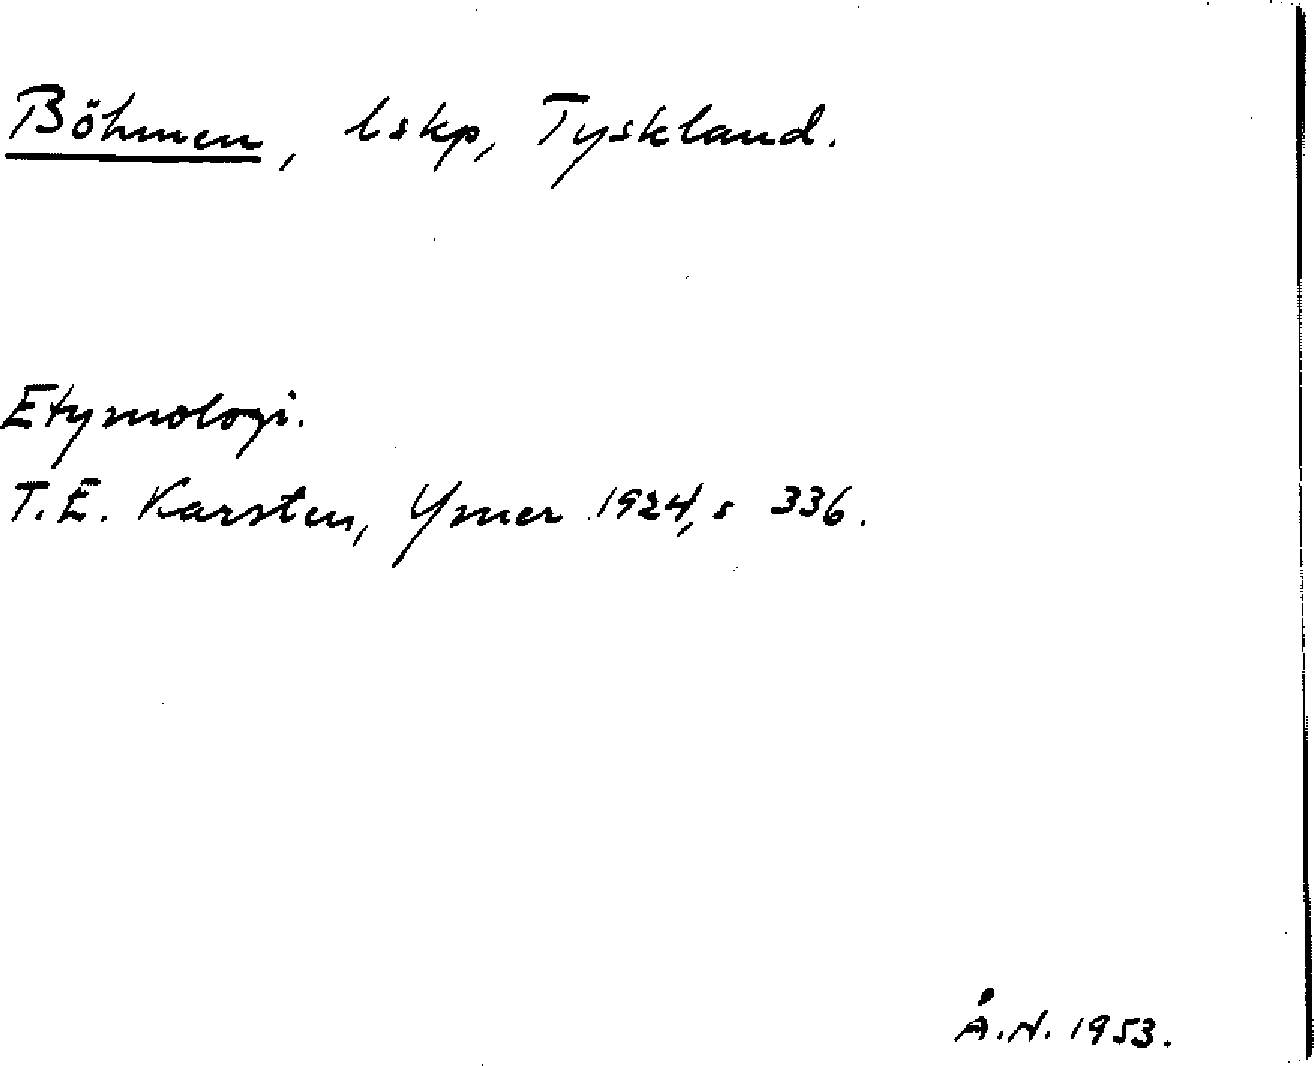 Böhmen, lskp, Tyskland.
Etymologi.
T.E. Karsten, Ymer 1924, s 336.
Å.N. 1953.